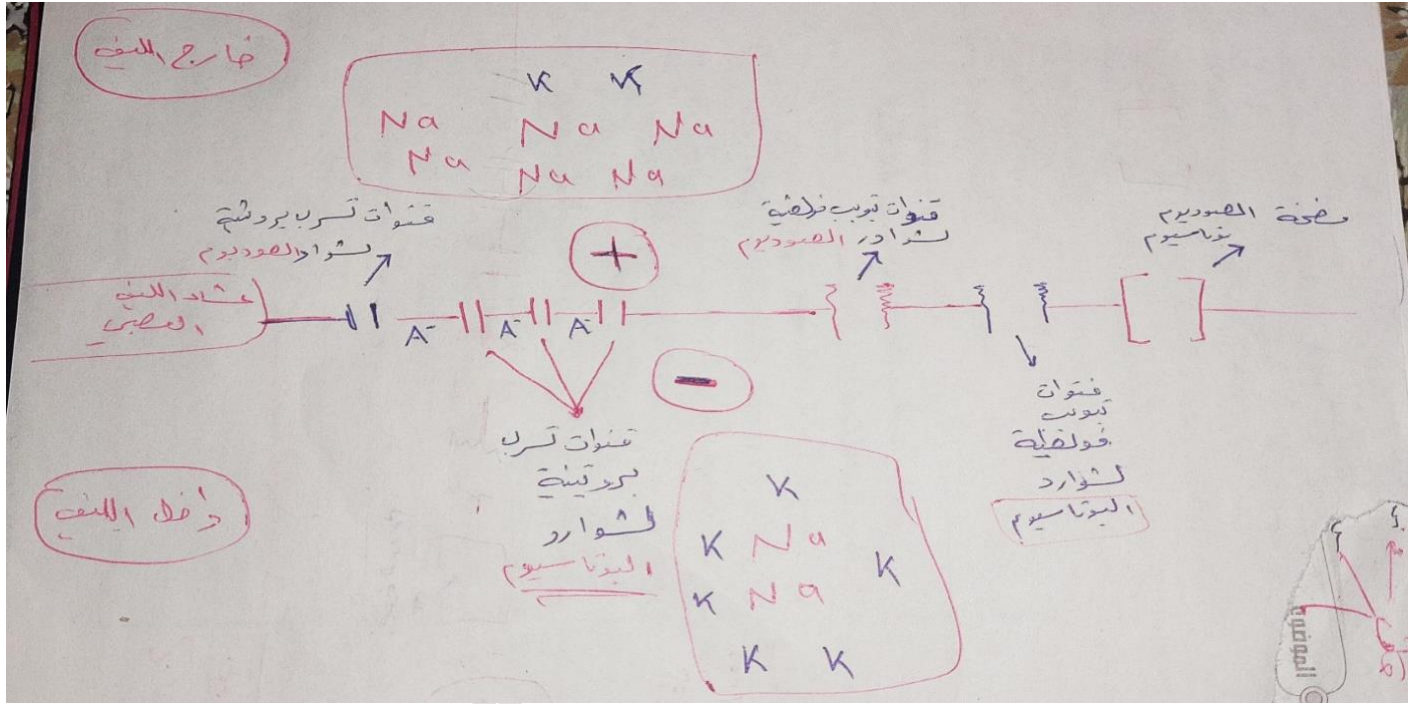 خارج الليف
K K
Na Na Na
Na Na Na
قنوات تسرب بروتينية
لشوارد الصوديوم
قنوات تبويب فولطية
لشوارد الصوديوم
مضخة الصوديوم
بوتاسيوم
+
غشاء الليف
العصبي
A⁻ A⁻ A⁻
−
قنوات تسرب
بروتينية
لشوارد
البوتاسيوم
قنوات
تبويب
فولطية
لشوارد
البوتاسيوم
داخل الليف
K
K Na K
K Na
K K
الموضوع